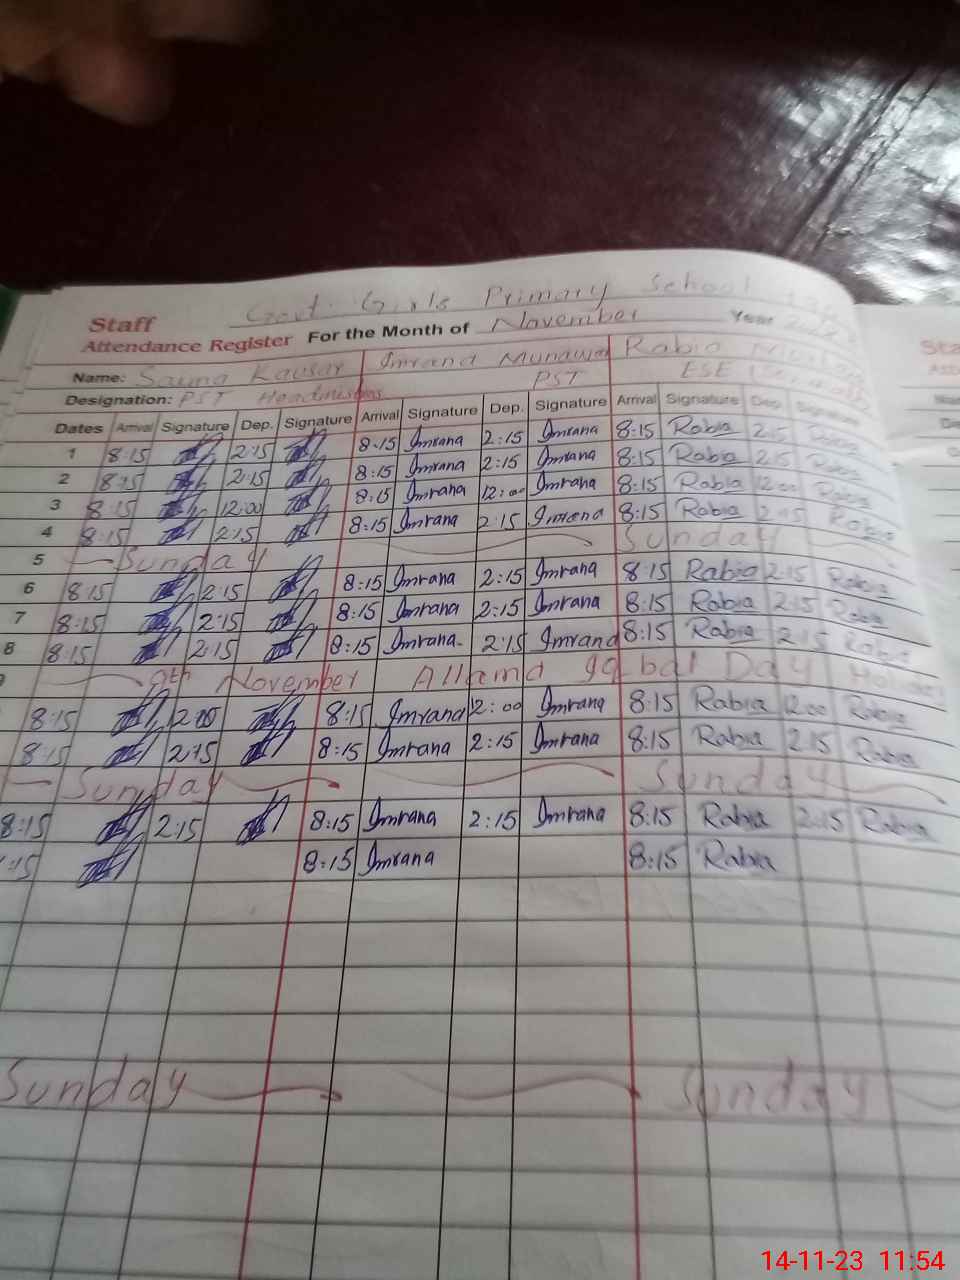 Govt. Girls Primary School
Staff
Attendance Register For the Month of November Year
Name: Saima Kausar Imrana Munawar Rabia
Designation: PST Headmistress PST ESE
Dates Arrival Signature Dep. Signature Arrival Signature Dep. Signature Arrival Signature Dep.
1 8:15 2:15 8:15 Imrana 2:15 Imrana 8:15 Rabia 2:15
2 8:15 2:15 8:15 Imrana 2:15 Imrana 8:15 Rabia 2:15
3 8:15 12:00 8:15 Imrana 12:00 Imrana 8:15 Rabia 12:00
4 8:15 2:15 8:15 Imrana 2:15 Imrana 8:15 Rabia 2:15 Rabia
5 Sunday Sunday
6 8:15 2:15 8:15 Imrana 2:15 Imrana 8:15 Rabia 2:15 Rabia
7 8:15 2:15 8:15 Imrana 2:15 Imrana 8:15 Rabia 2:15 Rabia
8 8:15 2:15 8:15 Imrana 2:15 Imrana 8:15 Rabia 2:15 Rabia
9th November Allama Iqbal Day
8:15 12:00 8:15 Imrana 12:00 Imrana 8:15 Rabia 12:00 Rabia
8:15 2:15 8:15 Imrana 2:15 Imrana 8:15 Rabia 2:15 Rabia
Sunday Sunday
8:15 2:15 8:15 Imrana 2:15 Imrana 8:15 Rabia 2:15 Rabia
:15 8:15 Imrana 8:15 Rabia
Sunday Sunday
14-11-23 11:54